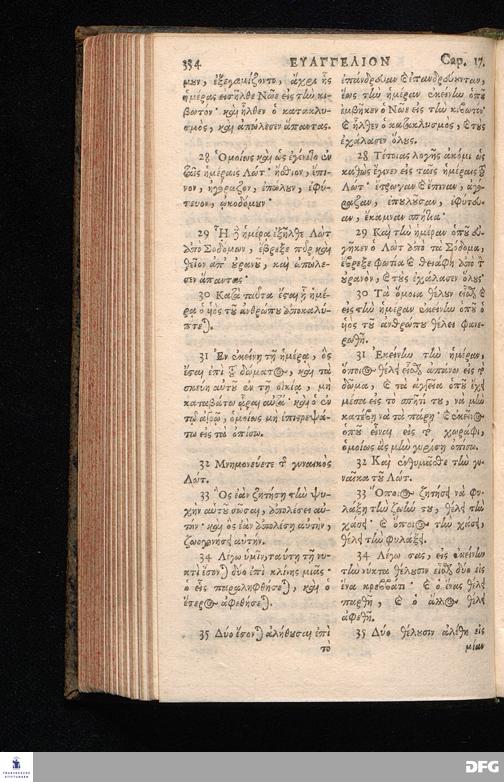 334 ΕΥΑΓΓΕΛΙΟΝ Cap. 17.
μουν, ἐξεγαμίζοντο, ἄχρι ἧς
ἡμέρας εισῆλθε Νῶε εἰς τὴν κι-
βωτον· καὶ ἦλθεν ὁ κατακλυ-
σμος, καὶ απώλεσεν ἅπαντας.
28 Ὁμοίως καὶ ὡς ἐγένετο ἐν
ταῖς ἡμέραις Λώτ· ἤσθιον, ἔπι-
νον, ηγόραζον, ἐπώλουν, ἐφύ-
τευον, ᾠκοδόμουν·
29 Ἧ δὲ ἡμέρᾳ ἐξῆλθε Λώτ
ἀπὸ Σοδόμων, ἔβρεξε πῦρ καὶ
θεῖον ἀπ' οὐρανοῦ, καὶ ἀπώλε-
σεν ἅπαντας·
30 Κατὰ ταῦτα ἔσται ᾗ ἡμέ-
ρᾳ ὁ υἱὸς τοῦ ἀνθρώπου ἀποκαλυ-
πτεται.
31 Ἐν ἐκείνῃ τῇ ἡμέρᾳ, ὃς
ἔσται ἐπὶ τοῦ δώματος, καὶ τὰ
σκεύη αὐτοῦ ἐν τῇ οἰκίᾳ, μὴ
καταβάτω ἆραι αὐτά· καὶ ὁ ἐν
τῷ ἀγρῷ, ὁμοίως μὴ ἐπιστρεψά-
τω εις τὰ ὀπίσω.
32 Μνημονεύετε τῆς γυναικὸς
Λώτ.
33 Ὃς ἐὰν ζητήσῃ τὴν ψυ-
χὴν αὐτοῦ σῶσαι, ἀπολέσει αὐ-
τήν· καὶ ὃς ἐὰν ἀπολέσῃ αυτην,
ζωογονήσει αὐτήν.
34 Λέγω ὑμῖν, ταύτῃ τῇ νυ-
κτὶ ἔσονται δύο ἐπὶ κλίνης μιᾶς·
ὁ εἷς παραληφθήσεται, καὶ ὁ
ἕτερος ἀφεθήσεται.
35 Δύο ἔσονται ἀλήθουσαι ἐπὶ
το
ἐπανδρεύαν & ἐπανδρευονταν,
ἕως τὴν ἡμέραν ἐκείνην ὁποῦ
ἐμβῆκεν ὁ Νῶε εἰς τὴν κιβωτον·
& ἦλθεν ὁ κατακλυσμος, & τοὺς
ἐχάλασεν ὅλους.
28 Τέτοιας λογῆς ἀκόμι ὡς
καθὼς ἔγινεν εἰς ταῖς ἡμέραις τοῦ
Λώτ· ἐτρωγαν & ἔπιναν, ἀγό-
ραζαν, ἐπουλοῦσαν, ἐφυτευ-
αν, ἔκαμναν σπήτια·
29 Καὶ τὴν ἡμέραν ὁποῦ εὐ-
γῆκεν ὁ Λώτ ἀπὸ τὰ Σόδομα,
ἔβρεξε φωτία & θειάφη ἀπὸ τὸν
οὐρανὸν, & τοὺς ἐχάλασεν ὅλους·
30 Τὰ ὅμοια θέλουν εἶσθαι &
εἰς τὴν ἡμέραν ἐκείνην ὁποῦ ὁ
υἱὸς τοῦ ανθρώπου θέλει φανε-
ρωθῆ.
31 Ἐκείνην τὴν ἡμέραν,
ὅποιος θέλει εἶσθαι ἀπάνου εἰς τὸ
δῶμα, & τὰ ἀγγεῖα ὁποῦ ἔχει
μέσα εἰς τὸ σπῆτί του, νὰ μὴν
κατέβῃ νὰ τὰ πάρῃ· & ἐκεῖνος
ὁποῦ εἶναι εἰς τὸ χωράφι,
ὁμοίως ἂς μὴν γυρίσῃ ὀπίσω.
32 Καὶ ἐνθυμᾶσθε τὴν γυ-
ναῖκα τοῦ Λώτ.
33 Ὅποιος ζητήσει νὰ φυ-
λάξῃ τὴν ζωήν του, θέλει τὴν
χάσει· & ὅποιος τὴν χάσει,
θέλει τὴν φυλάξει.
34 Λέγω σας, εἰς ἐκείνην
τὴν νύκτα θέλουσιν εἶσθαι δύο εἰς
ἕνα κρεββάτι· & ὁ ἕνας θέλει
παρθῆ, & ὁ ἄλλος θέλει
ἀφεθῆ.
35 Δύο θέλουσιν ἀλέθη εἰς
μίαν
DFG